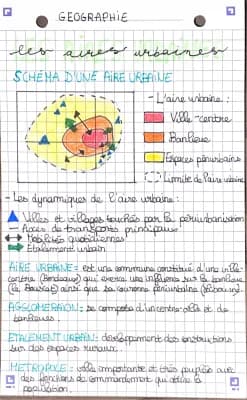 GEOGRAPHIE
Les aires urbaines
SCHÉMA D'UNE AIRE URBAINE
- L'aire urbaine :
Ville-centre
Banlieue
Espaces périurbains
Limite de l'aire urbaine
- Les dynamiques de l'aire urbaine :
Villes et villages touchés par la périurbanisation
Axes de transports principaux
Mobilités quotidiennes
Etalement urbain
AIRE URBAINE = est une commune constitué d'une ville-
centre (Bordeaux) qui exerce une influence sur la banlieue
(le Bouscat) ainsi que sa couronne périurbaine (Libourne).
AGGLOMERAION = se compote d'un centre-ville et de
banlieues.
ETALEMENT URBAIN: développement des constructions
sur des espaces ruraux.
METROPOLE : ville importante et très peuplée avec
des fonctions de commandement qui attire la
population.